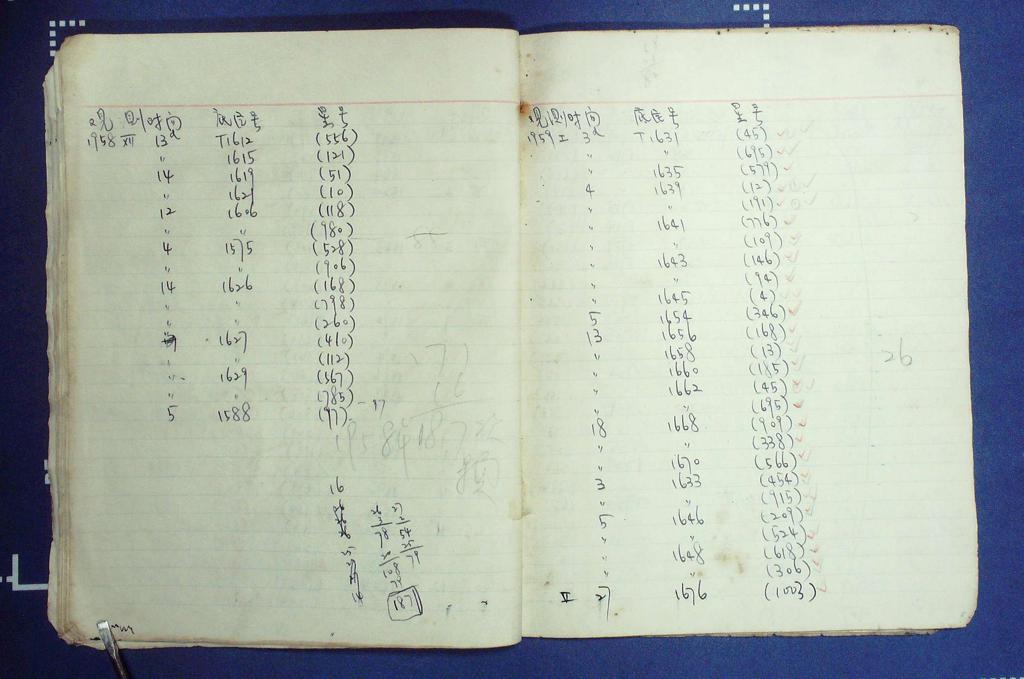 观测时间 底片号 星号
1958 XII 13d T1612 (556)
〃 1615 (121)
14 1619 (51)
〃 1621 (10)
12 1606 (118)
〃 〃 (980)
4 1575 (528)
〃 〃 (906)
14 1626 (168)
〃 〃 (798)
〃 〃 (260)
1627 (410)
〃 〃 (112)
〃 1629 (567)
〃 〃 (785)
5 1588 (97) -17
77
16
1958年
16
187
观测时间 底片号 星号
1959 I 3d T1631 (45)
〃 〃 (695)
〃 1635 (579)
4 1639 (12)
〃 〃 (191)
〃 1641 (776)
〃 〃 (109)
〃 1643 (146)
〃 〃 (94)
〃 1645 (4)
5 1654 (346)
13 1656 (168)
〃 1658 (13)
〃 1660 (185)
〃 1662 (45)
〃 〃 (695)
18 1668 (909)
〃 〃 (338)
〃 1670 (566)
3 1633 (454)
〃 〃 (915)
5 1646 (209)
〃 〃 (524)
〃 1648 (618)
〃 〃 (306)
II 27 1676 (1003)
26